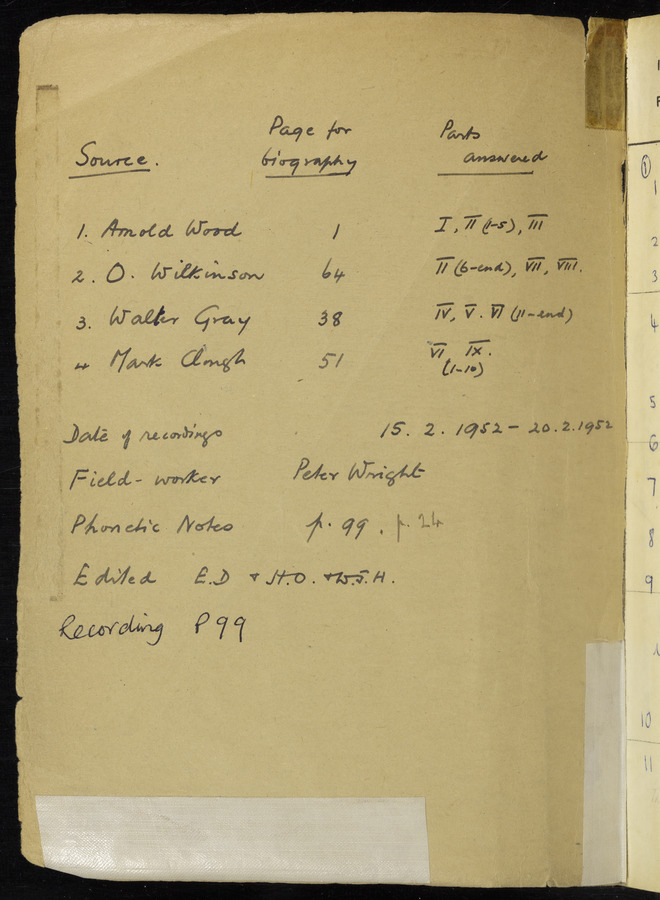 Page for Parts
Source. biography answered
1. Arnold Wood 1 I, II (1-5), III
2. O. Wilkinson 64 II (6-end), VII, VIII.
3. Walter Gray 38 IV, V. VI (11-end)
4 Mark Clough 51 VI IX.
(1-10)
Date of recordings 15. 2. 1952 - 20.2.1952
Field-worker Peter Wright
Phonetic Notes p. 99. p. 24
Edited E.D + H.O. + W.J.H.
Recording P99
1
1
2
3
4
5
6
7
8
9
10
11